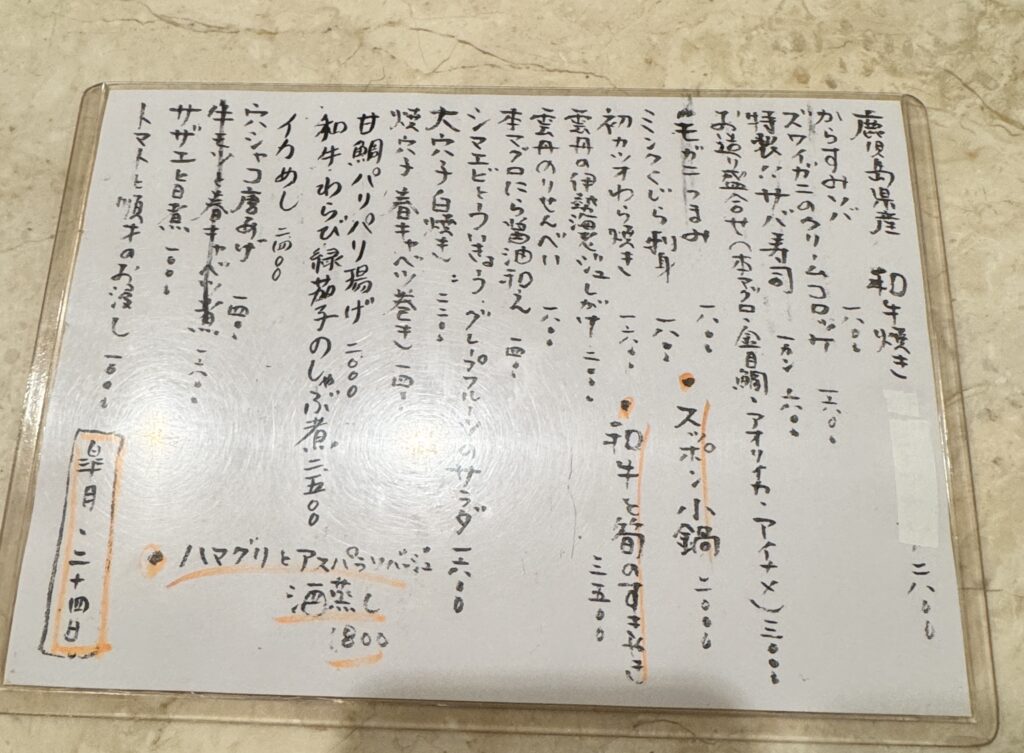 鹿児島県産 和牛焼き 二八〇〇
からすみソバ 一八〇〇
ズワイガニのクリームコロッケ
特製 サバ寿司 一カン 六〇〇
お造り盛合せ(本マグロ、金目鯛、アオリイカ、アイナメ)三〇〇〇
モガニつまみ 一八〇〇
スッポン小鍋 二〇〇〇
ミンクくじら刺身 一八〇〇
初カツオわら焼き 一六〇〇
和牛と筍のすき焼き 三五〇〇
雲丹の伊勢海老ジュレがけ 二〇〇〇
雲丹のりせんべい 一八〇〇
本マグロにら醤油和え 一四〇〇
シマエビとういきょう、グレープフルーツのサラダ 一六〇〇
大穴子白焼き 二二〇〇
焼穴子 春キャベツ巻き 一四〇〇
甘鯛パリパリ揚げ 二〇〇〇
和牛わらび緑茄子のしゃぶ煮 二五〇〇
イカめし 二四〇〇
穴シャコ唐あげ 一四〇〇
牛モツと春キャベツ煮 一六〇〇
サザエ旨煮
トマトと順才のお浸し 一〇〇〇
ハマグリとアスパラソバージュ
酒蒸し
1800
皐月、二十四日